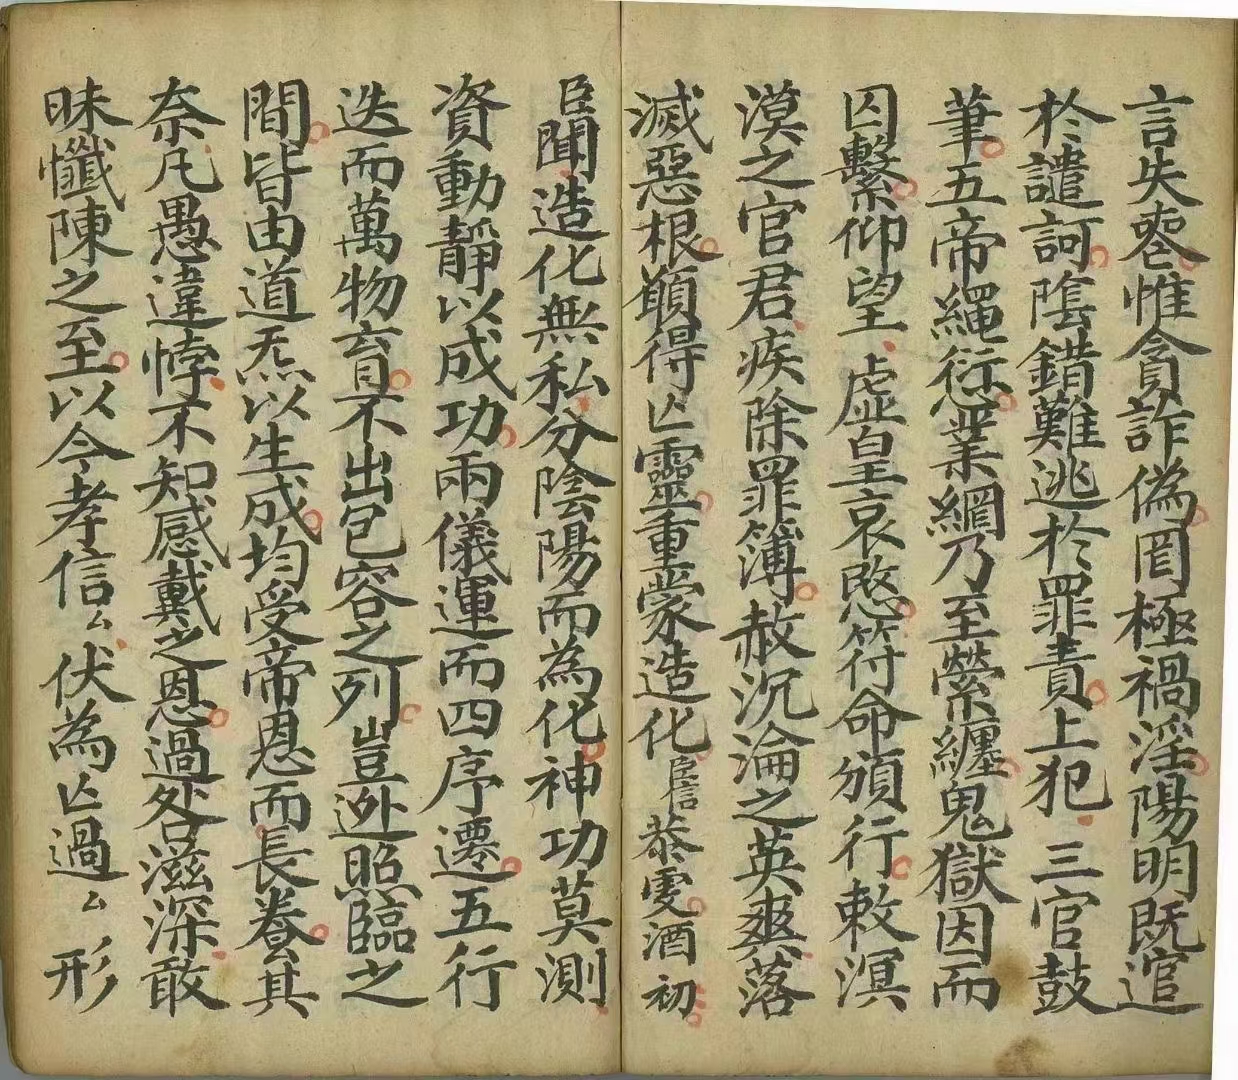 言失奏惟貪詐偽罔極禍淫陽明既逭
於譴訶陰錯難逃於罪責上犯三官鼓
筆五帝繩愆業網乃至縈纏鬼獄因而
囚繫仰望虛皇哀愍符命頒行敕溟
漠之官君疾除罪簿赦沉淪之英爽落
滅惡根願得亾靈重蒙造化臣信恭

酒初
臣聞造化無私分陰陽而為化神功莫測
資動靜以成功兩儀運而四序遷五行
迭而萬物育不出包容之列豈逃照臨之
間皆由道炁以生成均受帝恩而長養其
奈凡愚違悖不知感戴之恩過咎滋深敢
昧懺陳之至以今孝信厶伏為亾過厶形